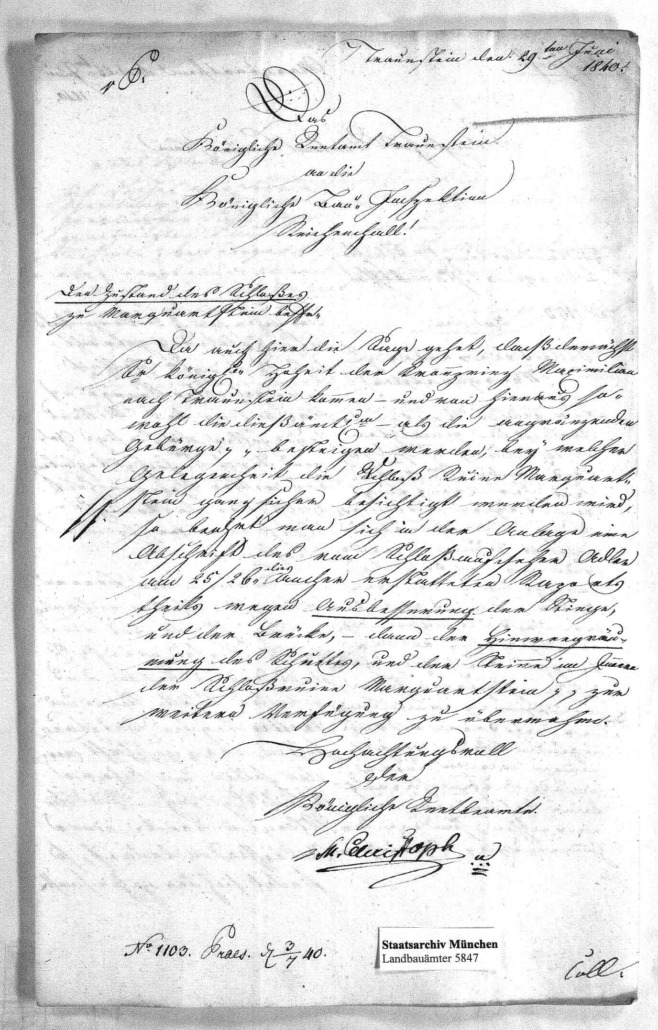 Traunstein den 29ten Juni
1840.
Das
Königliche Rentamt Traunstein
an die
Königliche Bau-Inspektion
Reichenhall!
Den Zustand des Schloßes
zu Marquartstein betfr.
Da auch hier die Sage gehet, daß demnächst
Se königl. Hoheit der Kronprinz Maximilian
nach Traunstein komen – und von hieraus so-
wohl die dießämtln – als die angränzenden
Gebürge „ besteigen werden, bey welcher
Gelegenheit die Schloß Ruine Marquart-
stein ganz sicher besichtigt werden wird,
so beehrt man sich in der Anlage eine
Abschrift des vom Schloßaufseher Adler
am 25/26 dies erstatteten Raports
theils wegen Ausbesserung der Stiege,
und der Brücke, – dann der Hinwegräu-
mung des Schuttes, und der Steine im Innern
der Schloßruine Marquartstein „ zur
weitern Verfügung zu übermachen.
Hochachtungsvoll
Der
Königliche Rentbeamte.
No 1103. Praes. d 3/7 40.
Staatsarchiv München
Landbauämter 5847
Coll.